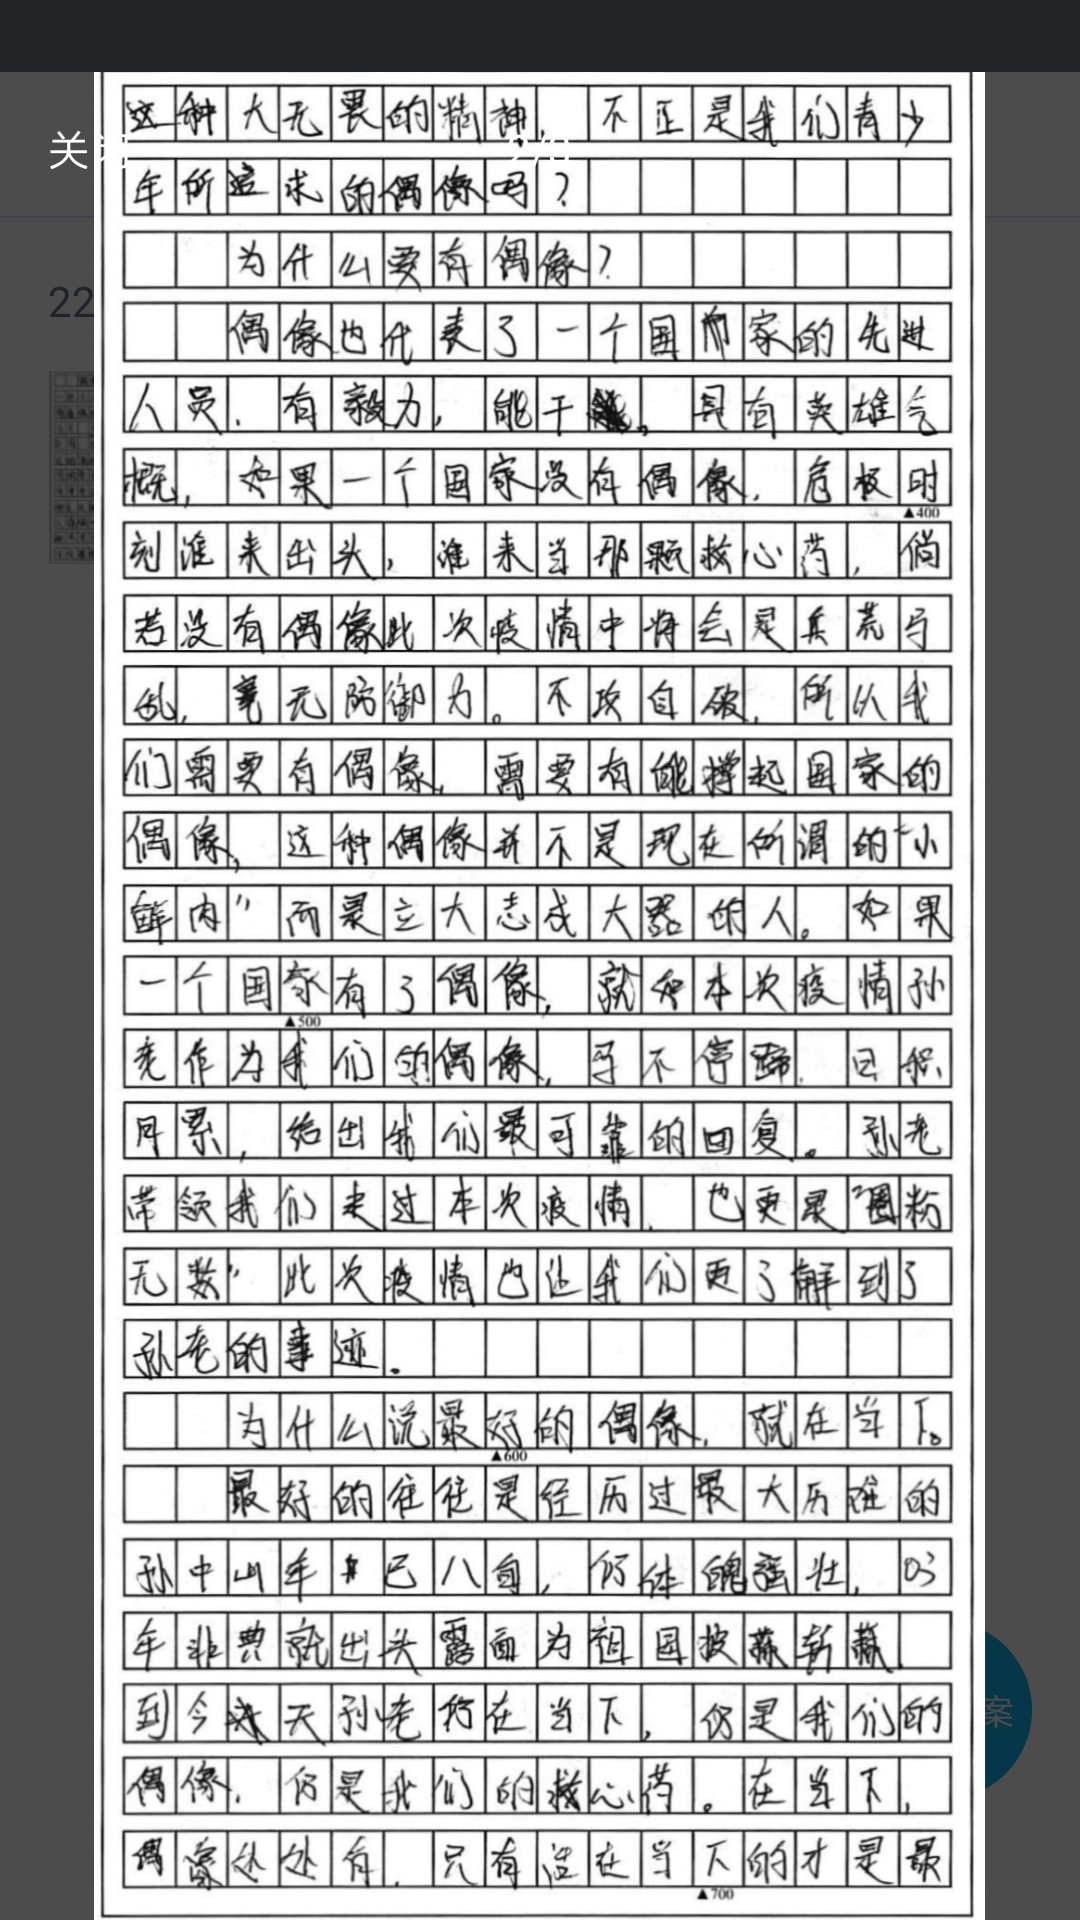 这种大无畏的精神，不正是我们青少
关闭
2/0
年所追求的偶像吗？
为什么要有偶像？
22
偶像也代表了一个国家的先进
人员．有毅力，能干。具有英雄气
概，如果一个国家没有偶像．危极时
▲400
刻谁来出头，谁来当那颗救心药，倘
若没有偶像此次疫情中将会是兵荒马
乱，毫无防御力。不攻自破，所以我
们需要有偶像，需要有能撑起国家的
偶像，这种偶像并不是现在所谓的“小
鲜肉”而是立大志成大器的人。如果
一个国家有了偶像，就如本次疫情孙
▲500
老作为我们的偶像，马不停蹄．日积
月累，给出我们最可靠的回复。孙老
带领我们走过本次疫情．也更是“圈粉
无数”此次疫情也让我们更了解到了
孙老的事迹．
为什么说最好的偶像，就在当下。
▲600
最好的往往是经历过最大历难的
孙中山年已八旬，仍体魄强壮，03
年非典就出头露面为祖国披荆斩棘．
到今天孙老仍在当下，仍是我们的
案
偶像，仍是我们的救心药。在当下，
偶像处处有．只有活在当下的才是最
▲700